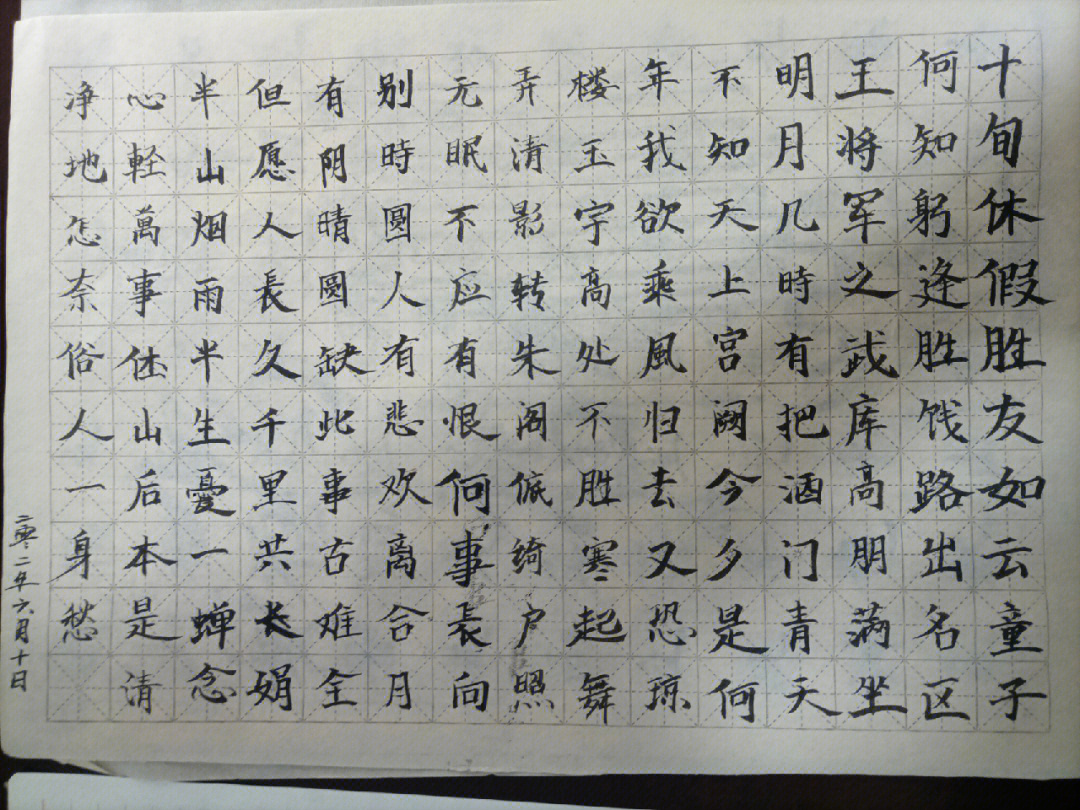 十旬休假胜友如云童子
何知躬逢胜饯路出名区
王将军之武库高朋满坐
明月几時有把酒门青天
不知天上宫阙今夕是何
年我欲乘風归去又恐琼
楼玉宇高处不胜寒起舞
弄清影转朱阁低绮户照
无眠不应有恨何事長向
别時圓人有悲欢离合月
有阴晴圓缺此事古难全
但愿人長久千里共长娟
半山烟雨半生憂一蝉念
心軽萬事休山后本是清
净地怎奈俗人一身愁
二零二年六月十日